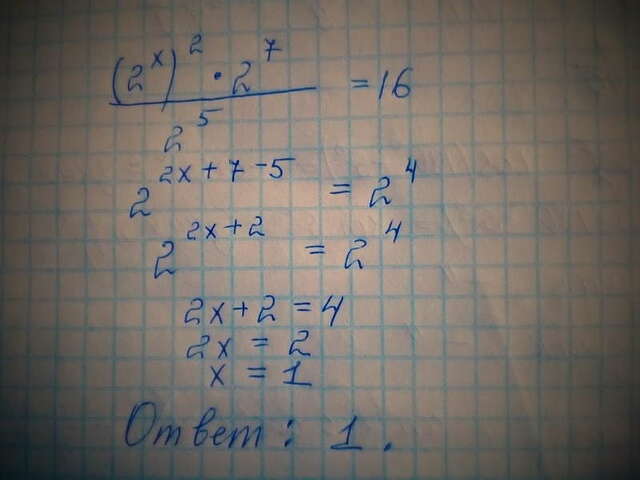 (2^x)^2 · 2^7 / 2^5 = 16
2^(2x+7-5) = 2^4
2^(2x+2) = 2^4
2x+2 = 4
2x = 2
x = 1
Ответ: 1.